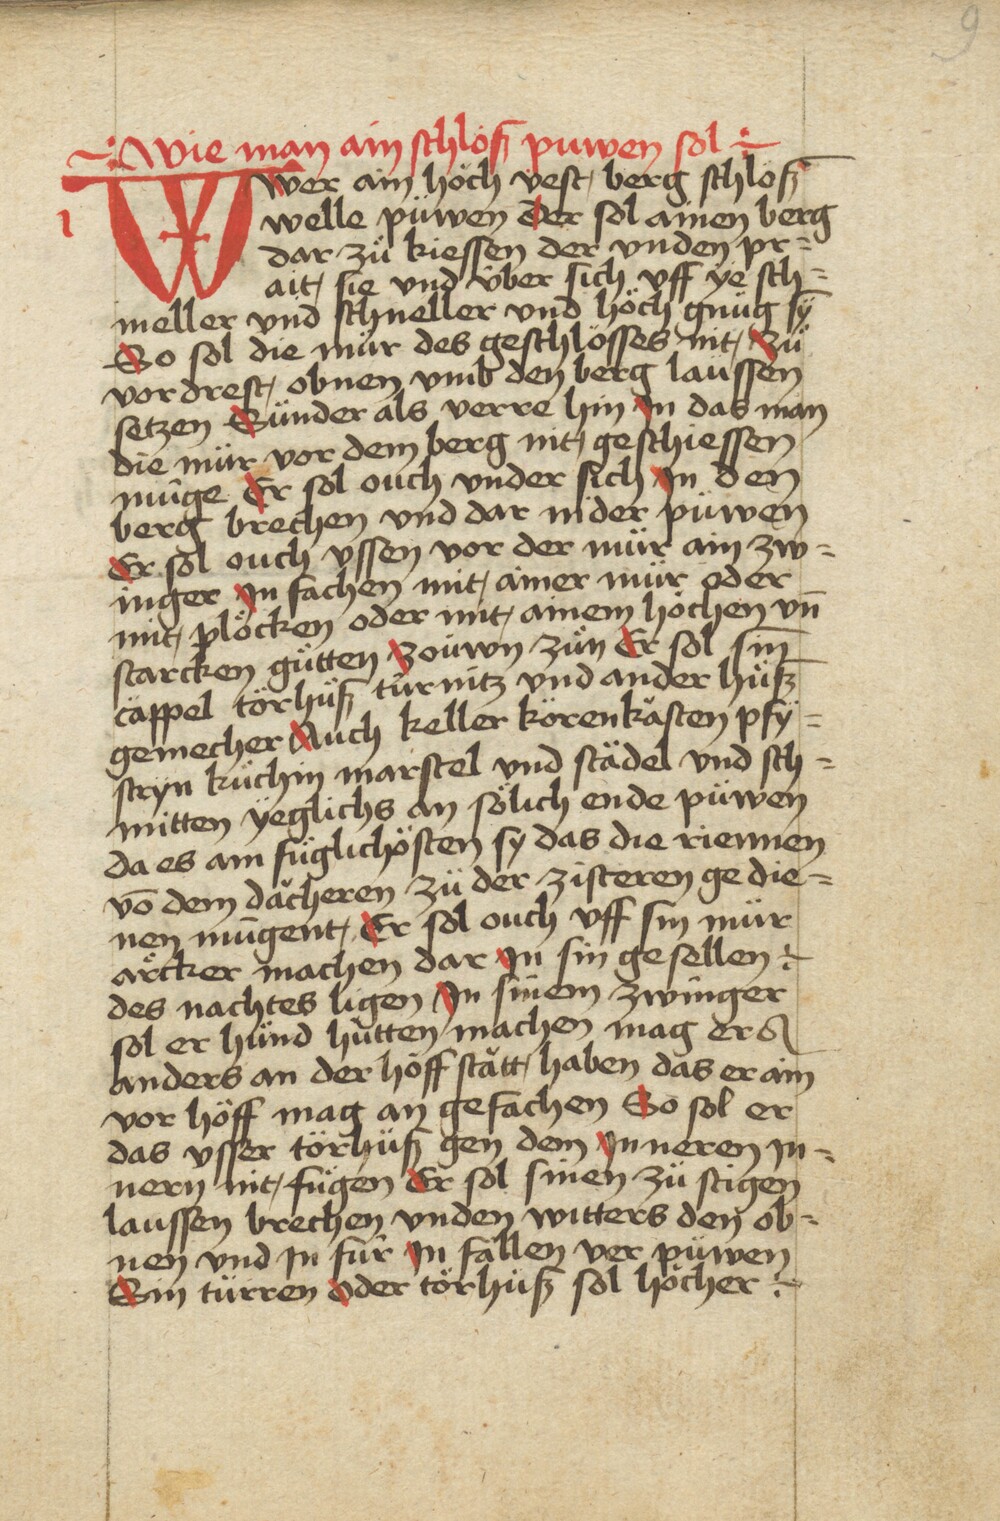 9
Wie man ain schlosß puwen sol
Wer ain höch vest berg schlosß
1
welle püwen Der sol ainen berg
dar zü kiessen der vnden pr=
ait sie vnd über sich vff ye sch=
meller vnd schneller vnd höch gnüg sy
So sol die mür des geschlösses nit Zü
vordrest obnen vmb den berg laussen
setzen Sünder als verre hin In das man
die mür vor dem berg nit geschiessen
müge Er sol ouch vnder sich In den
berg brechen vnd dar nider püwen
Er sol ouch vssen vor der mür ain zw=
inger In fachen mit ainer mür oder
mit plöcken oder mit ainem höchen vn̄
starcken gütten Zouwn zün Er sol sin
cäppel törhüß türnitz vnd ander hüß
gemecher Auch keller körenkästen pfÿ=
stryn küchin marstel vnd städel vnd sch=
mitten ÿeglichs an sölich ende püwen
da es am füglichösten sy das die riennen
vō dem dächeren zü der zisteren ge die=
nen mügent Er sol ouch vff sin mür
ärcker machen dar In sin gesellen
des nachtes ligen In sinem zwinger
sol er hünd hütten machen mag ers
anders an der höff stätt haben das er ain
vor höff mag an gefachen So sol er
das vsser törhüß gen dem Inneren In=
nern nit fügen Er sol sinen zü stigen
laussen brechen vnden witters den ob=
nen vnd In für In fällen ver püwen
Sin türren oder törhüß sol höcher